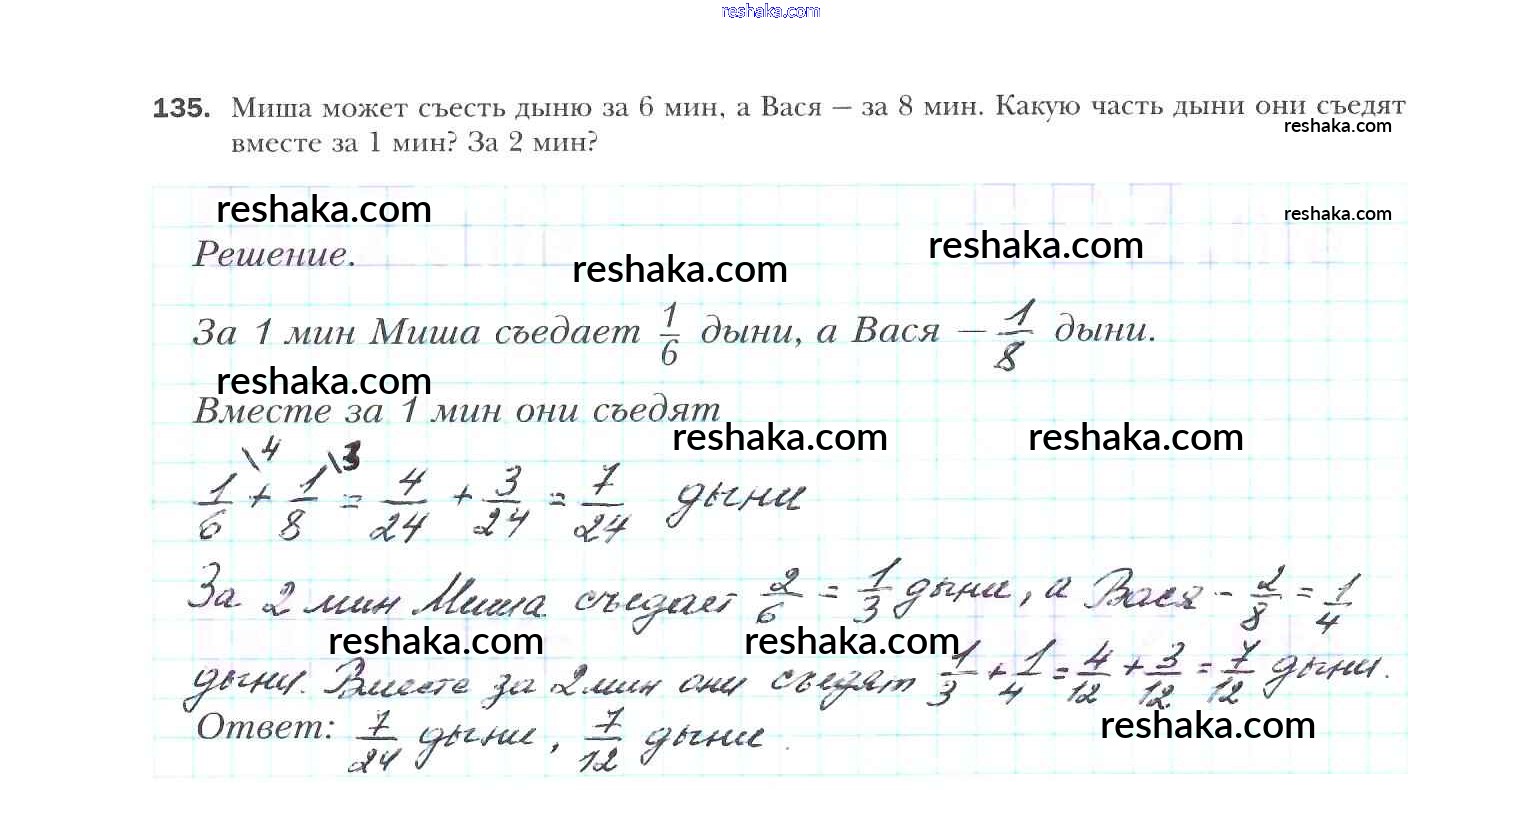 reshaka.com
135. Миша может съесть дыню за 6 мин, а Вася — за 8 мин. Какую часть дыни они съедят
reshaka.com
вместе за 1 мин? За 2 мин?
reshaka.com
reshaka.com
reshaka.com
Решение.
reshaka.com
За 1 мин Миша съедает 1/6 дыни, а Вася — 1/8 дыни.
reshaka.com
Вместе за 1 мин они съедят
reshaka.com
reshaka.com
1/6 \4 + 1/8 \3 = 4/24 + 3/24 = 7/24 дыни
За 2 мин Миша съедает 2/6 = 1/3 дыни, а Вася - 2/8 = 1/4
reshaka.com
reshaka.com
дыни. Вместе за 2 мин они съедят 1/3 + 1/4 = 4/12 + 3/12 = 7/12 дыни.
Ответ: 7/24 дыни, 7/12 дыни.
reshaka.com